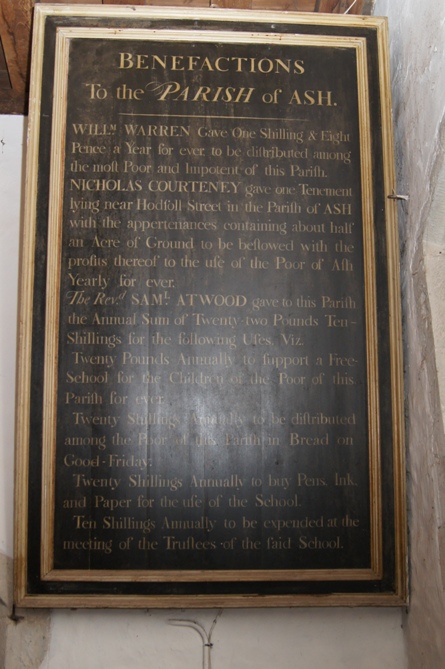 BENEFACTIONS
To the PARISH of ASH.
WILLM WARREN Gave One Shilling & Eight
Pence a Year for ever to be diſtributed among
the moſt Poor and Impotent of this Pariſh.
NICHOLAS COURTENEY gave one Tenement
lying near Hodſoll Street in the Pariſh of ASH
with the appertenances containing about half
an Acre of Ground to be beſtowed with the
profits thereof to the uſe of the Poor of Aſh
Yearly for ever.
The Revd. SAML. ATWOOD gave to this Pariſh
the Annual Sum of Twenty-two Pounds Ten-
Shillings for the following Uſes, Viz.
Twenty Pounds Annually to ſupport a Free-
School for the Children of the Poor of this
Pariſh for ever.
Twenty Shillings Annually to be diſtributed
among the Poor of this Pariſh in Bread on
Good-Friday.
Twenty Shillings Annually to buy Pens, Ink,
and Paper for the uſe of the School.
Ten Shillings Annually to be expended at the
meeting of the Truſtees of the ſaid School.